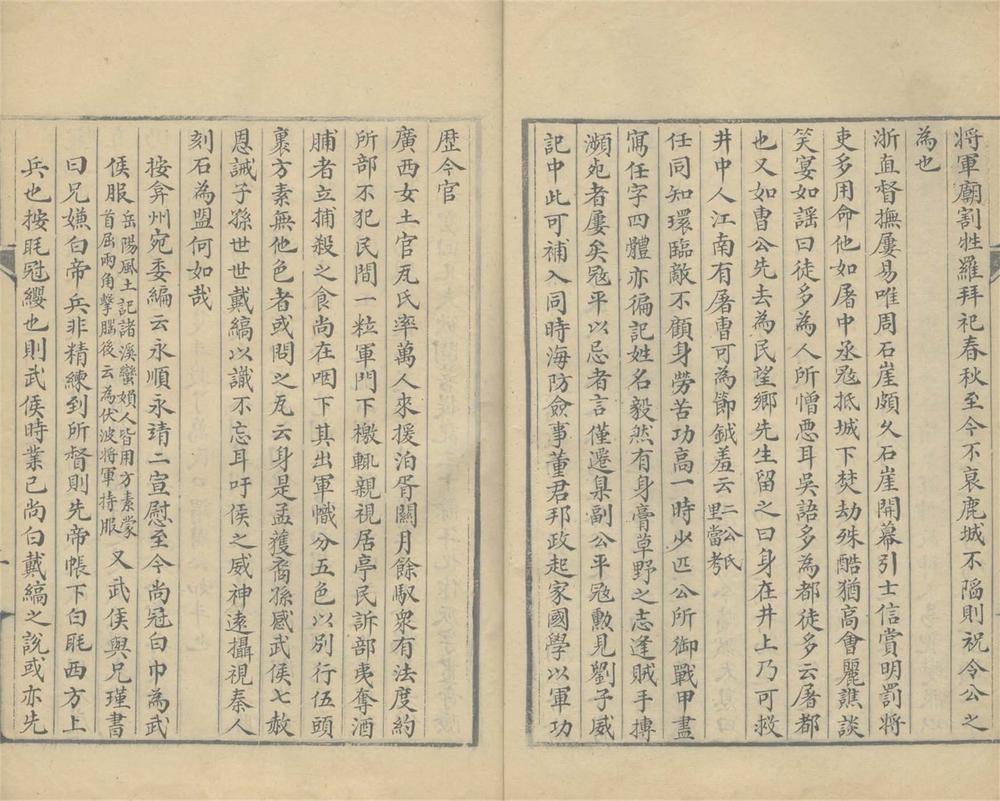 將軍廟割牲羅拜祀春秋至今不衰鹿城不陷則祝令公之
為也
浙直督撫屢易唯周石崖頗久石崖開幕引士信賞明罰將
吏多用命他如屠中丞冦抵城下焚劫殊酷猶高會麗譙談
笑宴如謡曰徒多為人所憎惡耳吳語多為都徒多云屠都
也又如曹公先去為民望鄉先生留之曰身在井上乃可救
井中人江南有屠曹可為節鉞羞云二公氏里當考
任同知環臨敵不顧身勞苦功高一時少匹公所御戰甲盡
寫任字四體亦徧記姓名毅然有身膏草野之志逢賊手摶
瀕死者屢矣冦平以忌者言僅遷臬副公平冦勲見劉子威
記中此可補入同時海防僉事董君邦政起家國學以軍功
歷今官
廣西女土官瓦氏率萬人來援泊胥關月餘馭衆有法度約
所部不犯民間一粒軍門下檄輒親視居亭民訴部夷奪酒
脯者立捕殺之食尚在咽下其出軍幟分五色以別行伍頭
裹方素無他色者或問之瓦云身是孟獲裔孫感武侯七赦
恩誡子孫世世戴縞以識不忘耳吁侯之威神遠攝視秦人
刻石為盟何如哉
按弇州宛委編云永順永靖二宣慰至今尚冠白巾為武
侯服岳陽風土記諸溪蠻嬾人皆用方素蒙首屈兩角擊腦後云為伏波將軍持服又武侯與兄瑾書
曰兄嫌白帝兵非精練到所督則先帝帳下白毦西方上
兵也按毦冠纓也則武侯時業已尚白戴縞之說或亦先